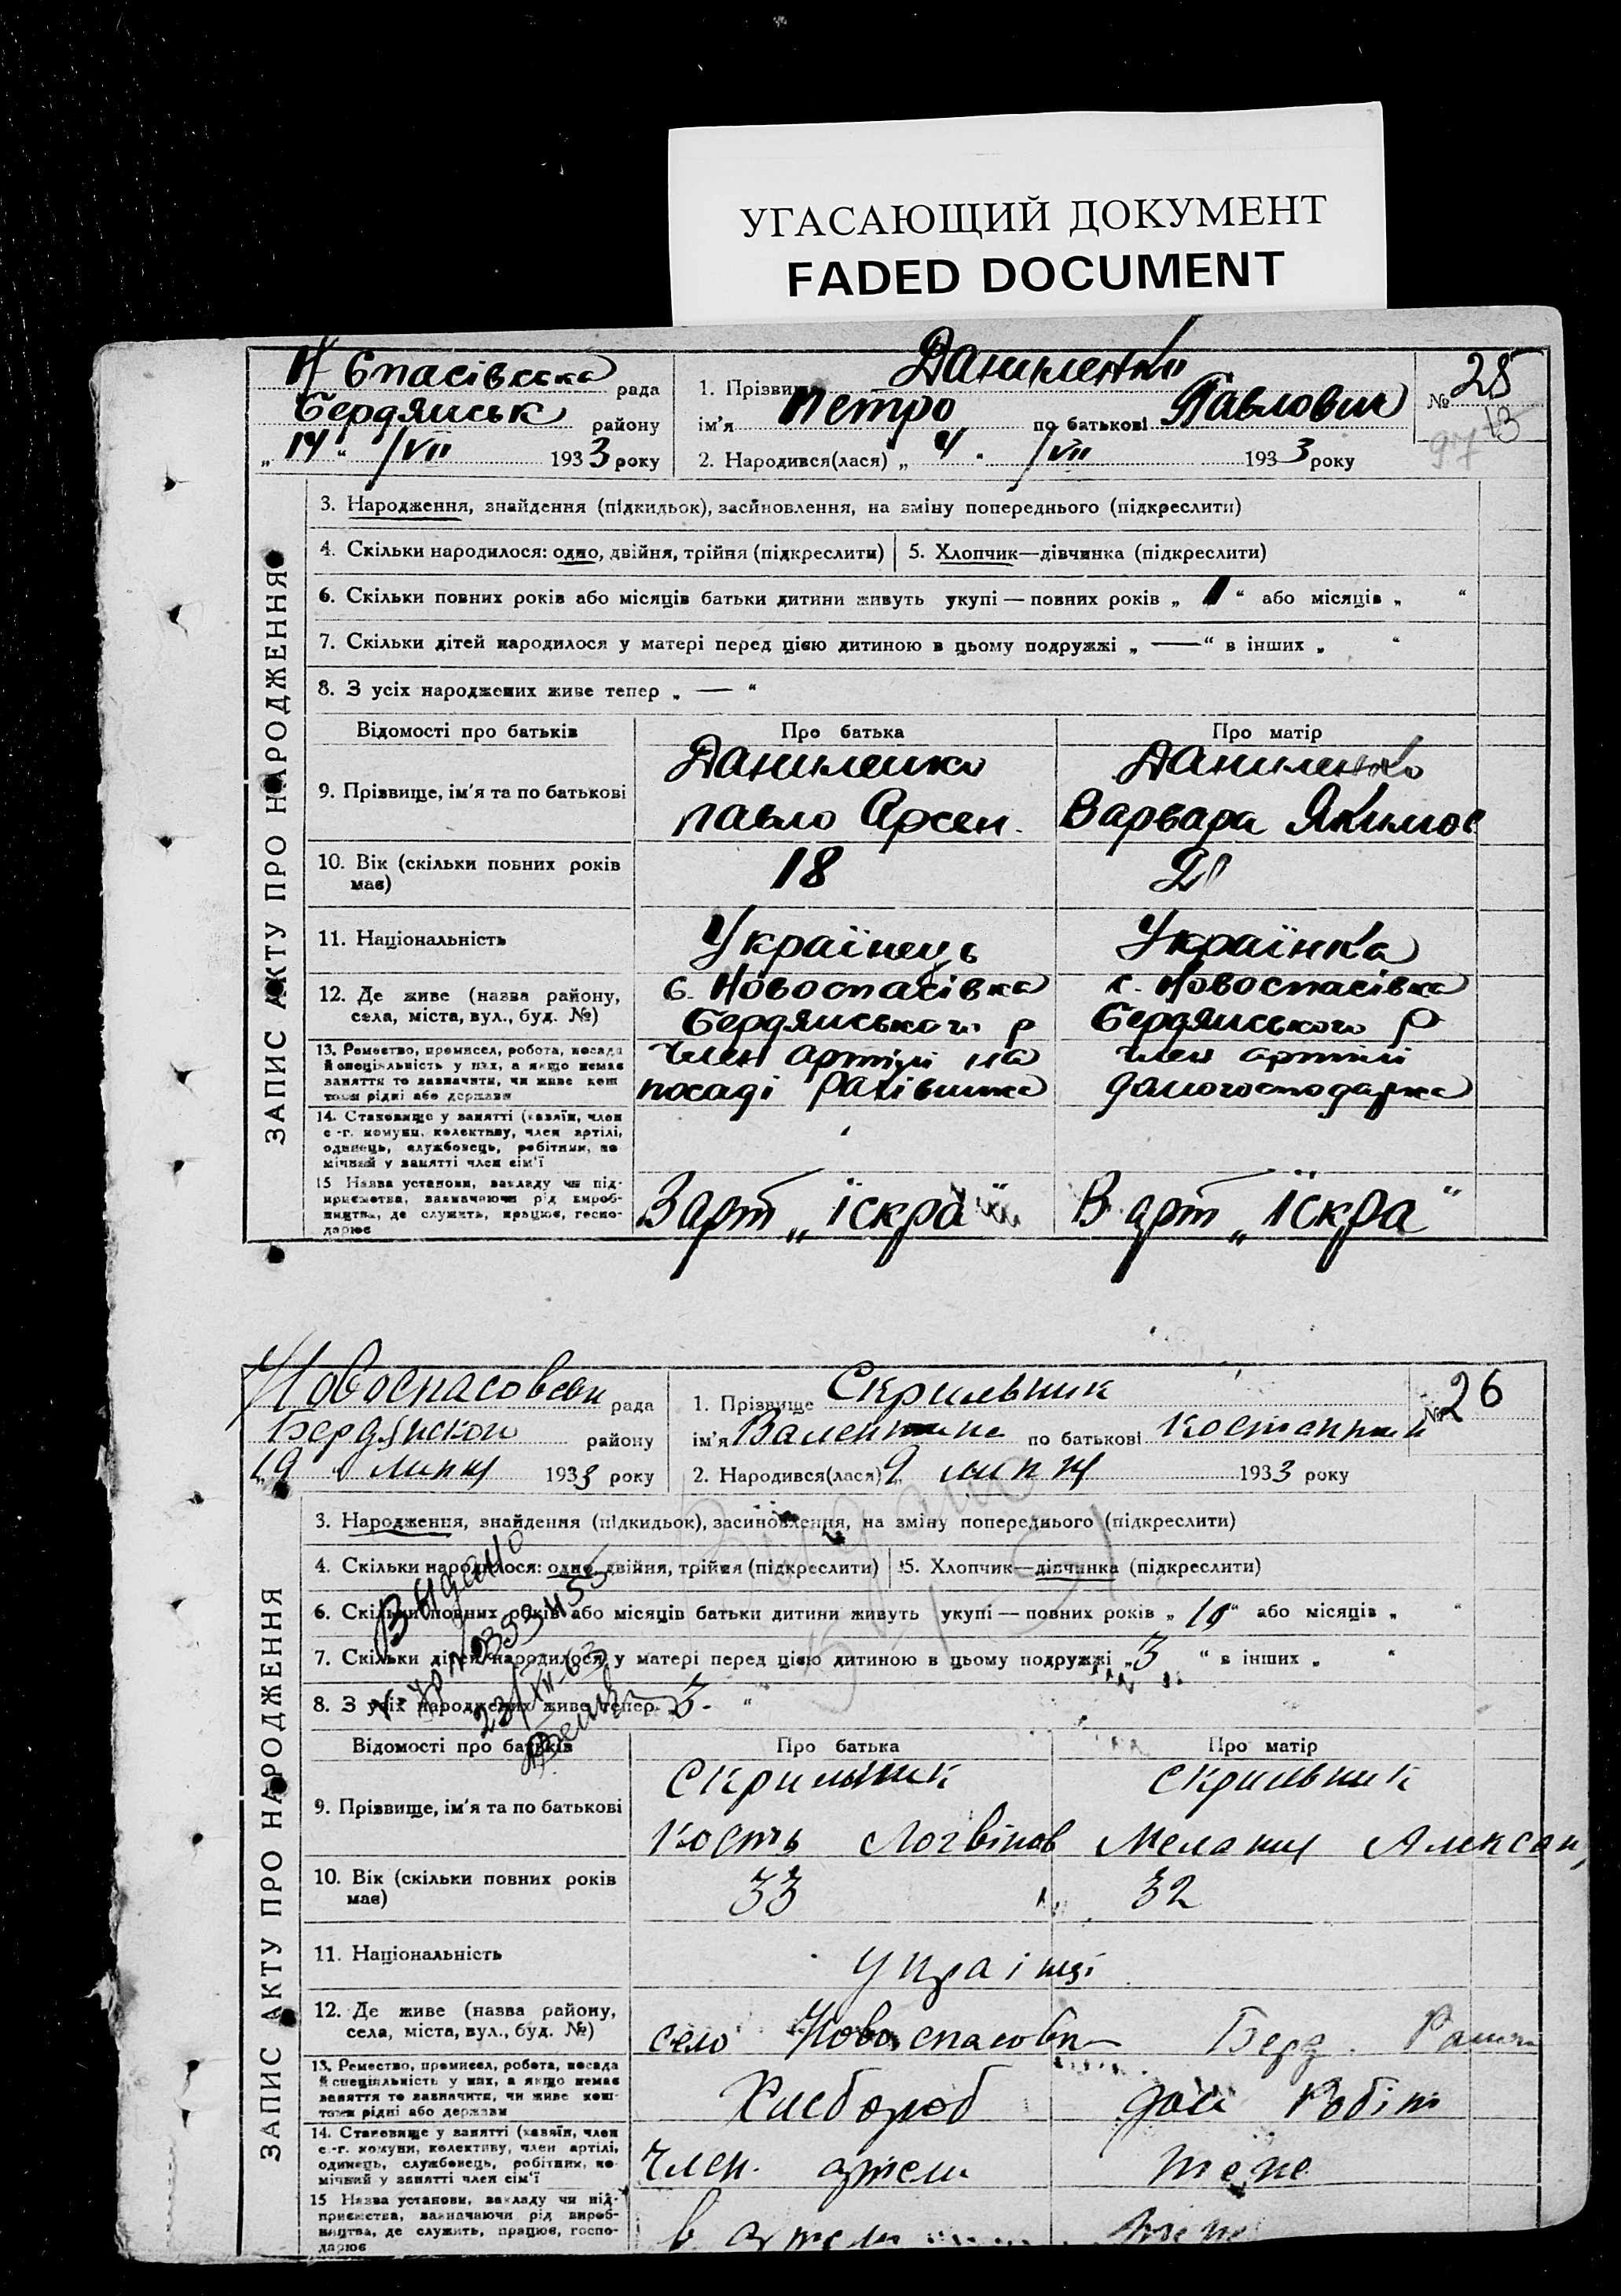 УГАСАЮЩИЙ ДОКУМЕНТ
FADED DOCUMENT
Н Спасівська рада
Бердянськ району
„14“ /VII 1933 року
1. Прізвище Даниленко
ім'я Петро по батькові Павлович
2. Народився(лася) „4“ /VII 1933 року
№ 25
13
97
ЗАПИС АКТУ ПРО НАРОДЖЕННЯ
3. Народження, знайдення (підкидьок), засиновлення, на зміну попереднього (підкреслити)
4. Скільки народилося: одно, двійня, трійня (підкреслити) 5. Хлопчик—дівчинка (підкреслити)
6. Скільки повних років або місяців батьки дитини живуть укупі — повних років „1“ або місяців „ “
7. Скільки дітей народилося у матері перед цією дитиною в цьому подружжі „—“ в інших „ “
8. З усіх народжених живе тепер „—“
Відомості про батьків Про батька Про матір
9. Прізвище, ім'я та по батькові
Даниленко Даниленко
Павло Арсен. Варвара Якимов
10. Вік (скільки повних років має)
18
11. Національність
Українець Українка
12. Де живе (назва району, села, міста, вул., буд. №)
с. Новоспасівка с. Новоспасівка
Бердянського р Бердянського р
13. Ремество, промисел, робота, посада й спеціяльність у них, а якщо немає заняття то зазначити, чи живе коштами рідні або держави
член артілі на член артілі
посаді рахівника домогосподарка
14. Становище у занятті (хазяїн, член с.-г. комуни, колективу, член артілі, одинець, службовець, робітник, помічний у занятті член сім'ї
15 Назва установи, закладу чи підприємства, зазначаючи рід виробництва, де служить, працює, господарює
В арт „іскра“ В арт „іскра“
Новоспасовськ рада
Бердянской району
„19“ липня 1933 року
1. Прізвище Скрильник
ім'я Валентина по батькові Костантин
2. Народився(лася) „9 липня 1933 року
№ 26
ЗАПИС АКТУ ПРО НАРОДЖЕННЯ
3. Народження, знайдення (підкидьок), засиновлення, на зміну попереднього (підкреслити)
4. Скільки народилося: одно, двійня, трійня (підкреслити) 5. Хлопчик—дівчинка (підкреслити)
6. Скільки повних років або місяців батьки дитини живуть укупі — повних років „10“ або місяців „ “
7. Скільки дітей народилося у матері перед цією дитиною в цьому подружжі „3“ в інших „ “
8. З усіх народжених живе тепер 3. “
Видано
Відомості про батьків Про батька Про матір
9. Прізвище, ім'я та по батькові
Скрильник Скрильник
Кость Логвінов Мелания Алексан
10. Вік (скільки повних років має)
33 32
11. Національність
Українці
12. Де живе (назва району, села, міста, вул., буд. №)
село Новоспасовк Берд. Район
13. Ремество, промисел, робота, посада й спеціяльність у них, а якщо немає заняття то зазначити, чи живе коштами рідні або держави
Хлебороб дом Робітн
14. Становище у занятті (хазяїн, член с.-г. комуни, колективу, член артілі, одинець, службовець, робітник, помічний у занятті член сім'ї
Член. артели тоже
15 Назва установи, закладу чи підприємства, зазначаючи рід виробництва, де служить, працює, господарює
в артели